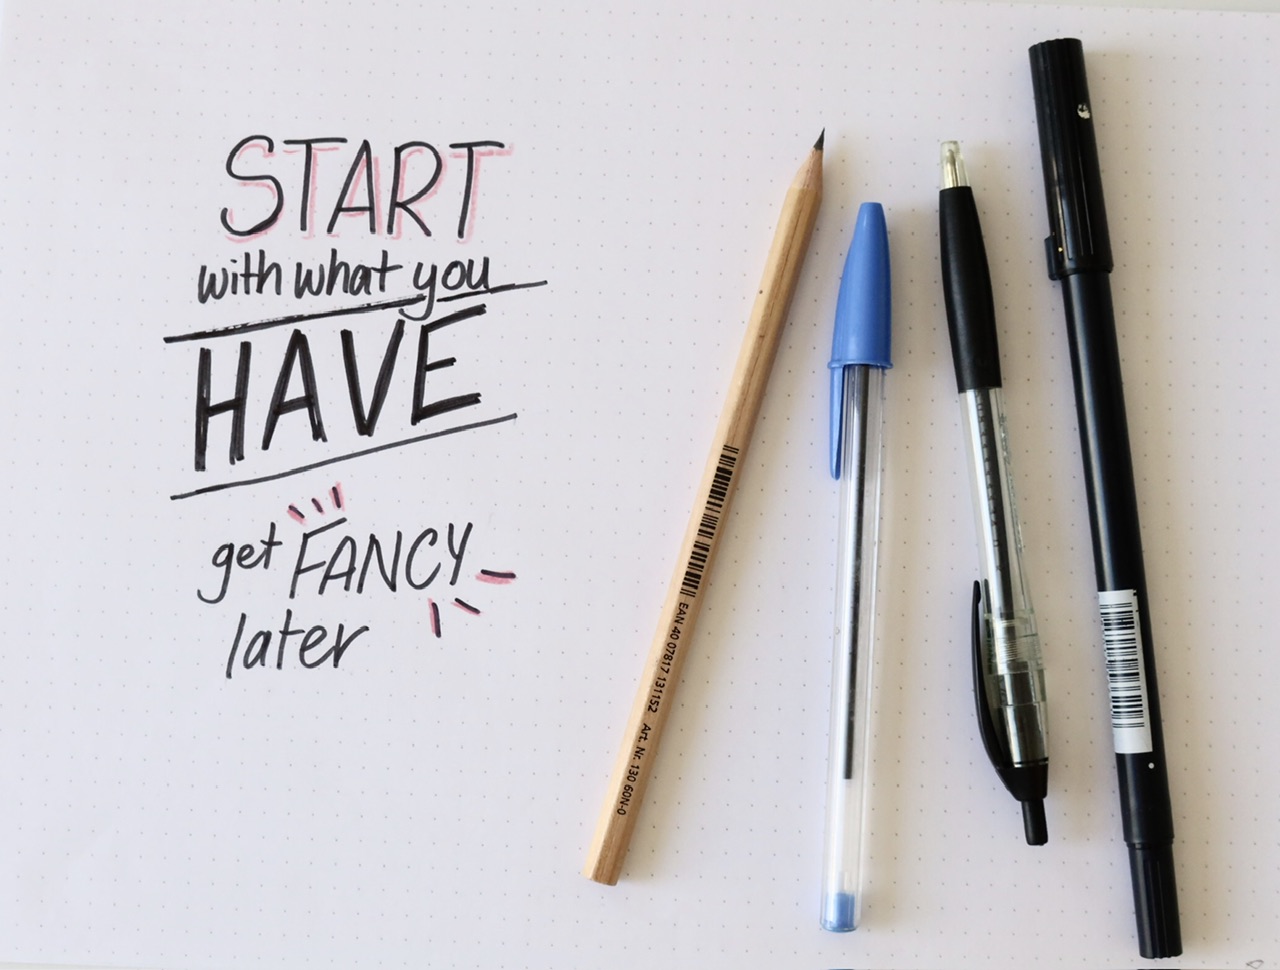 START
with what you
HAVE
get FANCY
later
EAN 40 07817 131152 Art. Nr. 130 60N-0